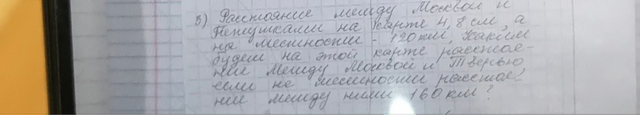 5) Расстояние между Москвой и
Петушками на карте 4,8 см, а
на местности - 120 км. Каким
будет на этой карте расстоя-
ние между Москвой и Тверью
если на местности расстоя-
ние между ними 160 км?